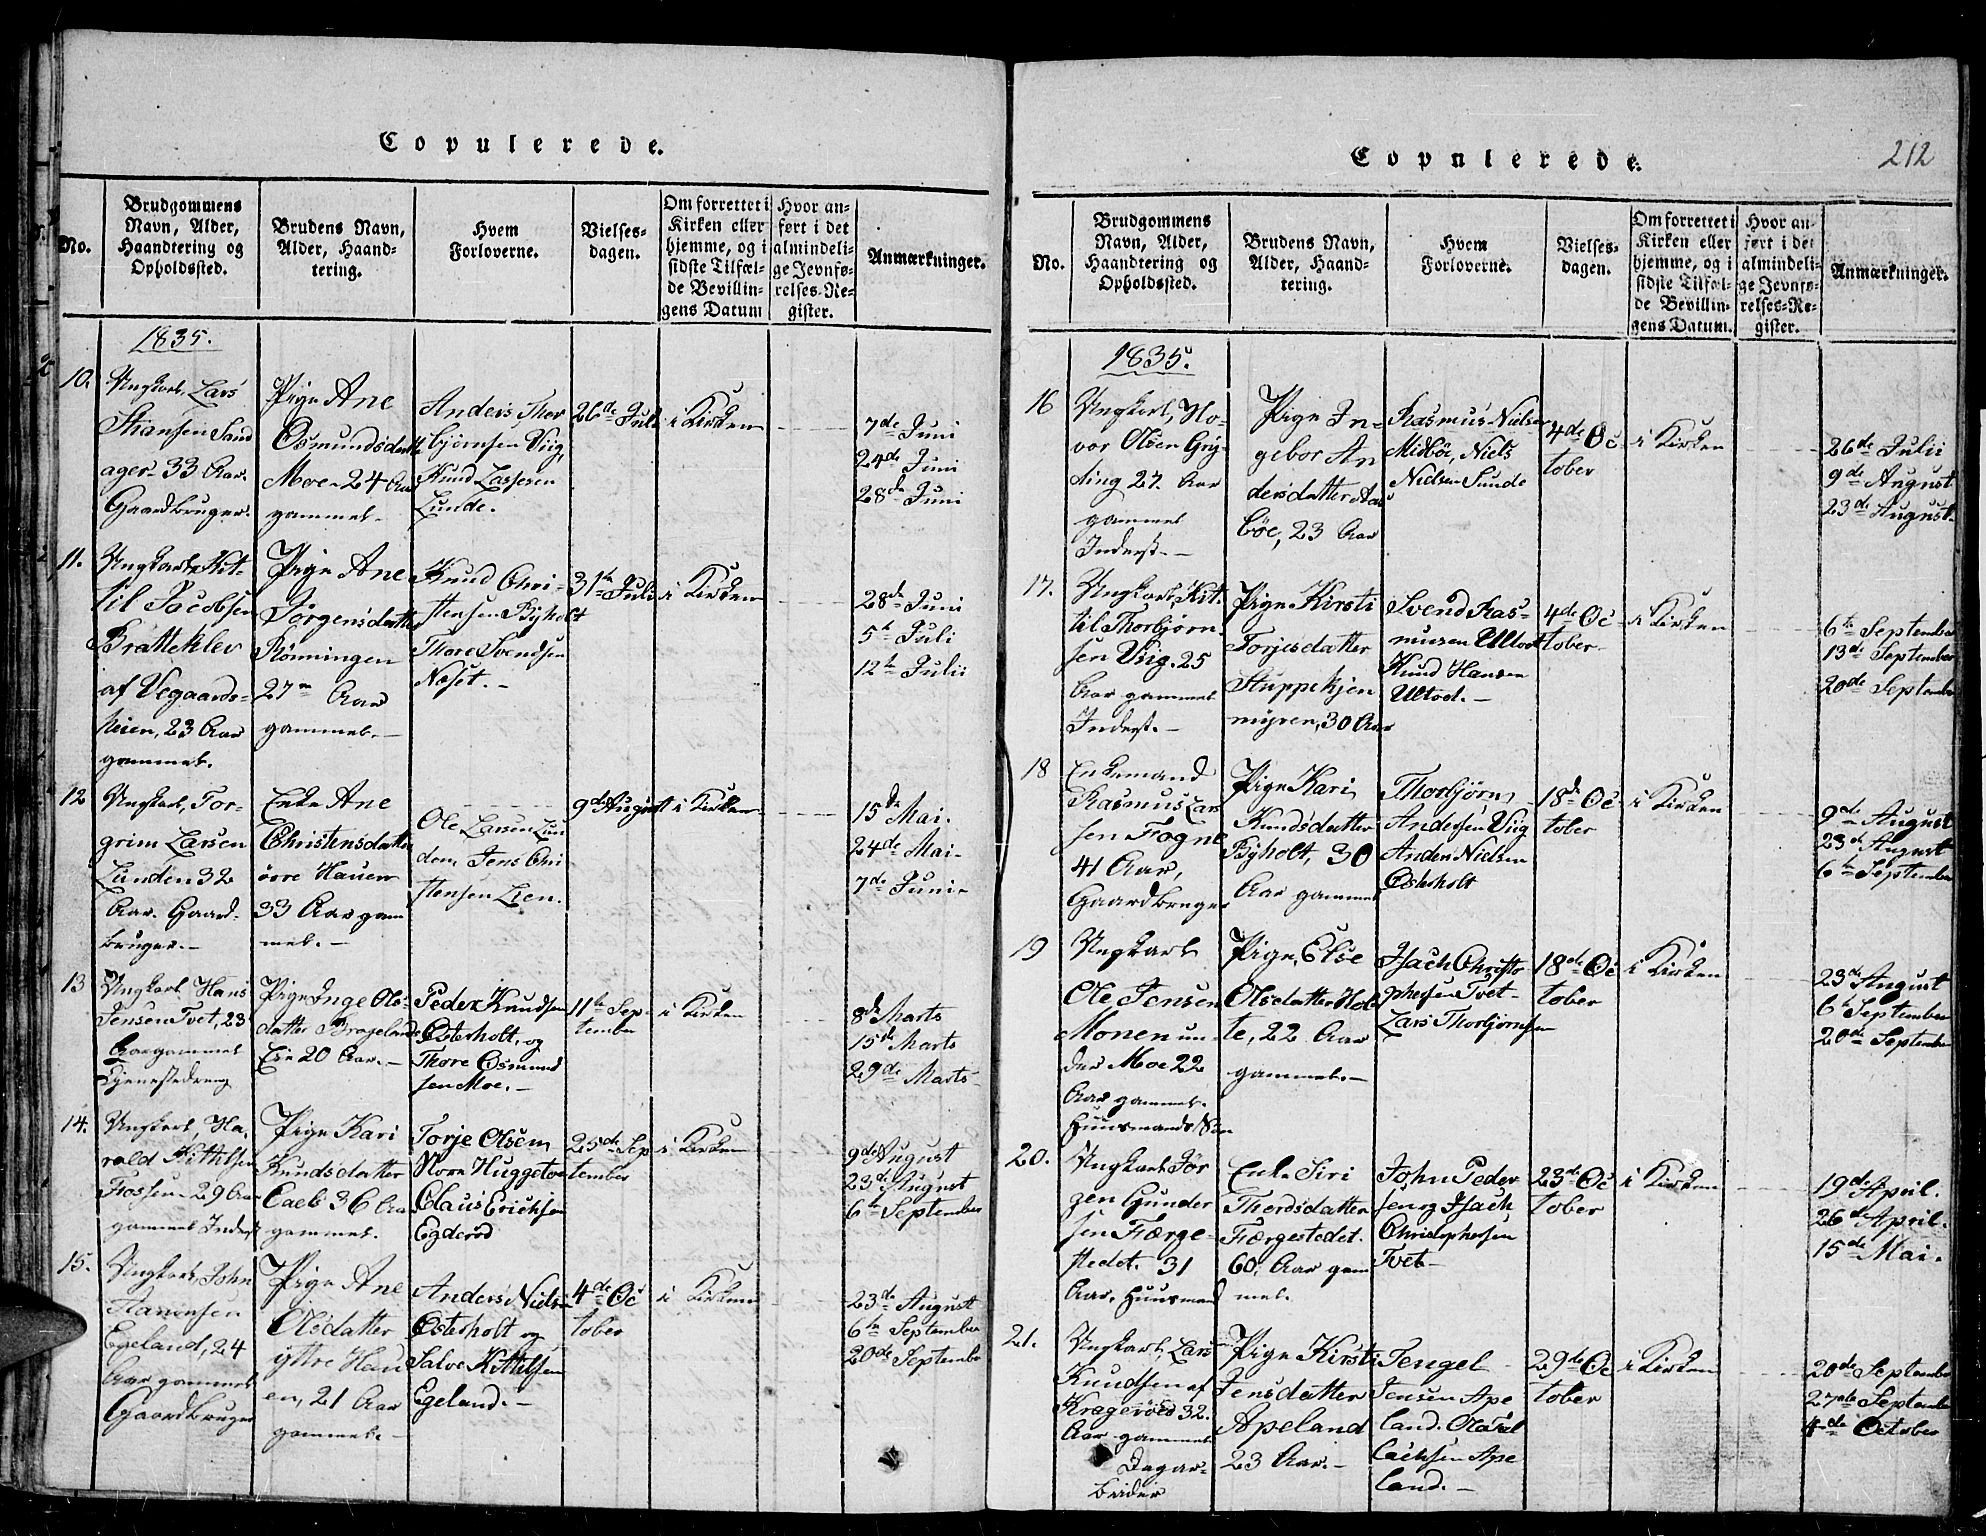 Copulerede.
No.
Brudgommens
Navn, Alder,
Haandtering og
Opholdssted.
Brudens Navn,
Alder, Haand-
tering.
Hvem
Forloverne.
Vielses-
dagen.
Om forrettet i
Kirken eller
hjemme, og i
sidste Tilfæl-
de Bevillin-
gens Datum
Hvor an-
ført i det
almindeli-
ge Jevnfø-
relses-Re-
gister.
Anmærkninger.
1835.
10.
Ungkarl, Lars
Stiansen Sand
ager 33 Aar.
Gaardbruger.
Pige Ane
Osmundsdatter
Moe 24 Aar
gammel.
Anders Thor
bjørnsen Viig,
Knud Lassesen
Lunde.
26de Juli
i Kirken
7de Juni
24de Juni
28de Juni
11.
Ungkarl Kit-
til Jacobsen
Brattekler
af Vegaards-
heien, 23 Aar
gammel.
Pige Ane
Jørgensdatter
Rønningen
27 Aar
gammel.
Knud Chri-
stensen Byholt
Thore Svendsen
Næset.
31te Juli
i Kirken
28de Juni
5te Juli
12te Julii
12
Ungkarl, Tor-
grim Larsen
Lunden 32
Aar. Gaard-
bruger.
Enke Ane
Christensdatter
øvre Hauen
33 Aar gam
mel.
Ole Larsen Lun
dem Jens Chri
stensen Lien.
9de August
i Kirken
15de Mai.
24de Mai.
7de Juni.
13
Ungkarl Hans
Jensen Tvet, 23
Aar gammel
Tjenestedreng
Pige Inge Ols-
datter Brageland
Eie 20 Aar.
Peder Knudsen
Østerholt, og
Thore Osmund
sen Moe.
11te Sep-
tember
i Kirken
8de Marts
15de Marts
29de Marts
14.
Ungkarl, Ha-
rald Kittilsen
Fossen 29 Aar
gammel Inderst
Pige Kari
Knudsdatter
36 Aar
gammel.
Torje Olsen
Huggeto
Olaus Erichsen
Egderød
25de Sep
tember
i Kirken
9de August
23de August
6te September
15.
Ungkarl, John
Egeland, 24
Aar gammel
Gaardbruger
Pige Ane
Olsdatter
yttre Hau
en, 21 Aar
gammel.
Anders Nielsen
Østerholt og
Salve Kittilsen
Egeland.
4de Oc
tober
i Kirken
23de August
6te September
20de September
Copulerede.
212
No.
Brudgommens
Navn, Alder,
Haandtering og
Opholdssted.
Brudens Navn,
Alder, Haand-
tering.
Hvem
Forloverne.
Vielses-
dagen.
Om forrettet i
Kirken eller
hjemme, og i
sidste Tilfæl-
de Bevillin-
gens Datum.
Hvor an-
ført i det
almindeli-
ge Jevnfø-
relses-Re-
gister.
Anmærkninger.
1835.
16
Ungkarl, Ho-
vor Olsen Gry-
ting 27 Aar
gammel
Inderst.
Pige In-
gebor An
dersdatter Aas
bøe, 23 Aar
Rasmus Nielsen
Midbøe, Niels
Nielsen Sunde
4de Oc
tober
i Kirken
26de Julii
9de August
23de August
17.
Ungkarl, Kit-
til Thorbjørn-
sen Viig. 25
Aar gammel
Inderst.
Pige Kirsti
Torjesdatter
Stuppekjen
myren, 30 Aar
Svend Ras-
mussen Ulltvet
Knud Hansen
4de Oc-
tober.
i Kirken
6te September
13de September
20de September
18
Enkemand
Rasmus Lar
sen Fogne
41 Aar,
Gaardbruger
Pige Kari
Knudsdatter
Byholt, 30
Aar gammel
Thorbjørn
Andersen Viig
Anders Nielsen
Østerholt
18de Oc-
tober
i Kirken
9de August
23de August
6te September
19
Ungkarl
Ole Jensen
Monen un-
der Moe 22
Aar gammel.
Huusmands Søn
Pige, Else
Olsdatter Hol
te, 22 Aar
gammel.
Isach Christo
phersen Tvet-
Lars Thorbjørnsen
18de Oc
tober
i Kirken
23de August
6te September
20de September
20.
Ungkarl Jør
gen Gunder
sen Færge-
stedet. 31
Aar, Huusmand
Enke Siri
Thordsdatter
Færgestedet.
60. Aar gam
mel.
John Peder
sen og Isach
Christophersen
Tvet
23de Oc
tober
i Kirken
19de April.
26de April.
15de Mai.
21.
Ungkarl, Lars
Knudsen af
Kragerøes 32.
Aar gammel
Dagar-
beider
Pige Kirsti
Jensdatter
Apeland
23 Aar.
Tengel
Jensen Ape
land.
Isachsen Ape
land.
29de Oc
tober
i Kirken
20de September
27de September
4de October